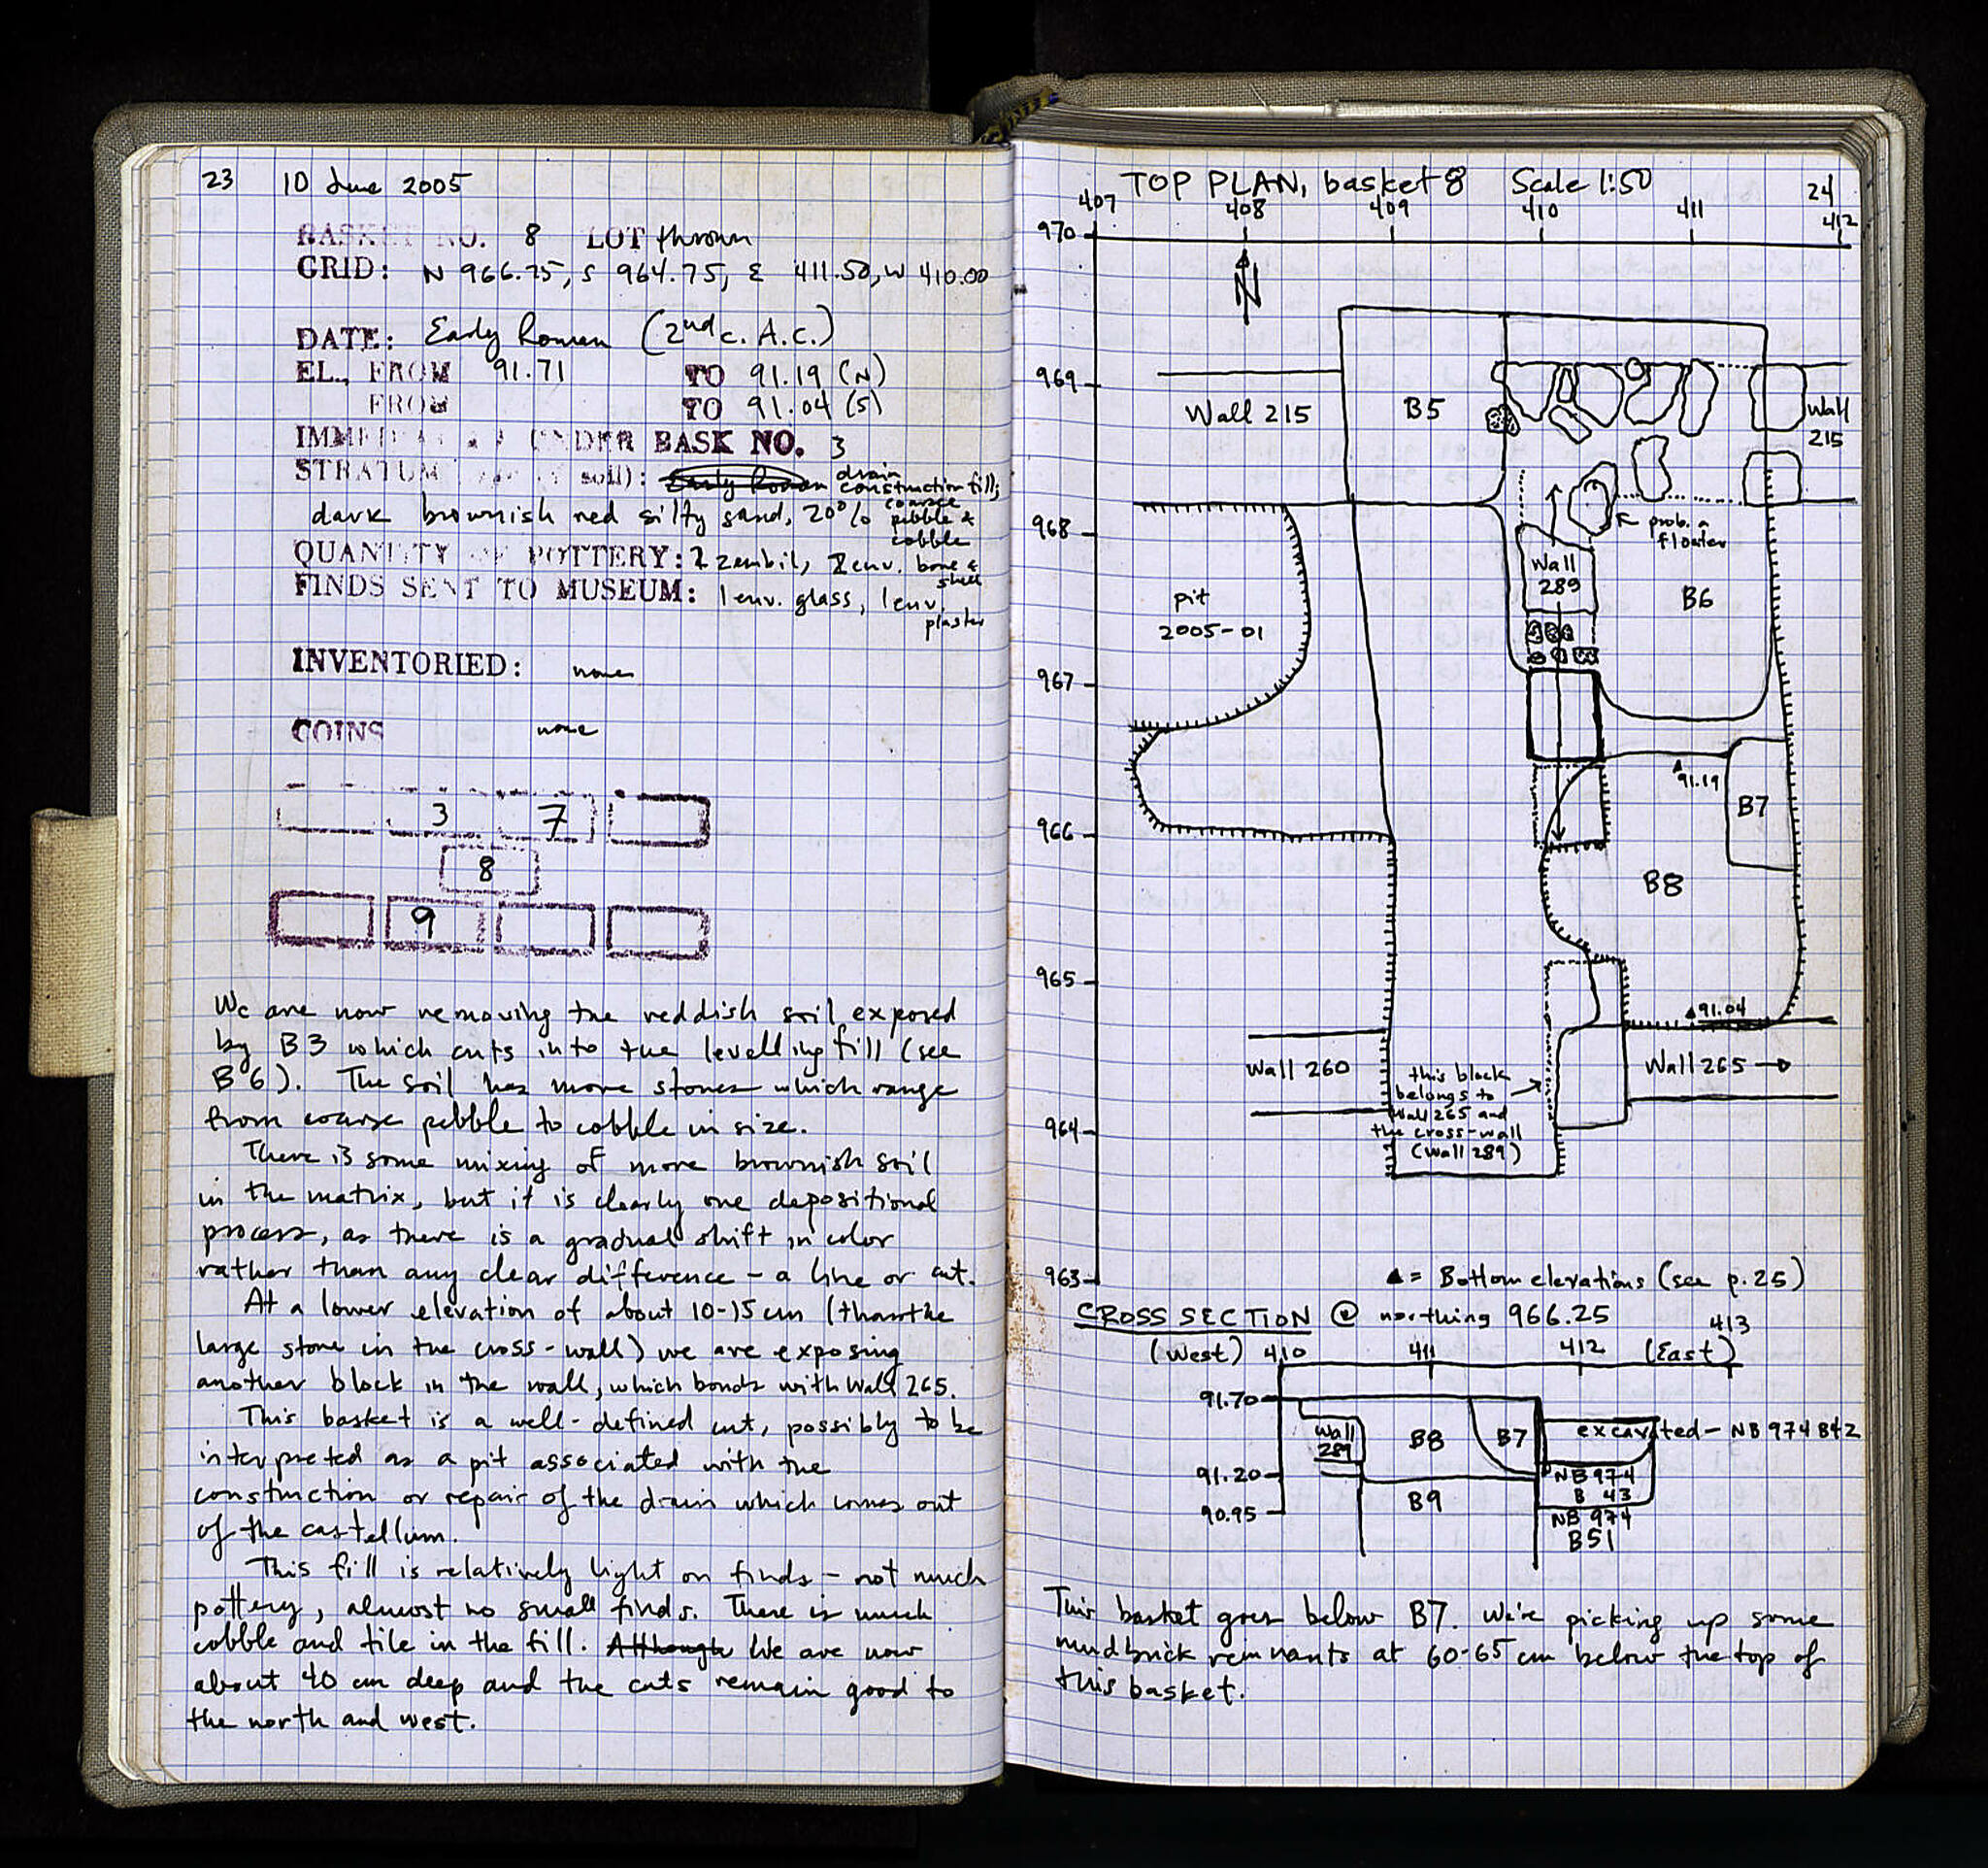 23 10 June 2005
BASKET NO. 8 LOT thrown
GRID: N 966.75, S 964.75, E 411.50, W 410.00
DATE: Early Roman (2nd c. A.C.)
EL., FROM 91.71 TO 91.19 (N)
FROM TO 91.04 (S)
IMMEDIATELY UNDER BASK NO. 3
STRATUM soil): Early Roman drain construction fill;
dark brownish red silty sand, 20% coarse pebble & cobble
QUANTITY OF POTTERY: 2 zembil, 2 env. bone & shell
FINDS SENT TO MUSEUM: 1 env. glass, 1 env. plaster
INVENTORIED: none
COINS none
3 7
8
9
We are now removing the reddish soil exposed
by B3 which cuts into the levelling fill (see
B6). The soil has more stones which range
from coarse pebble to cobble in size.
There is some mixing of more brownish soil
in the matrix, but it is clearly one depositional
process, as there is a gradual shift in color
rather than any clear difference - a line or cut.
At a lower elevation of about 10-15 cm (than the
large stone in the cross-wall) we are exposing
another block in the wall, which bonds with Wall 265.
This basket is a well-defined cut, possibly to be
interpreted as a pit associated with the
construction or repair of the drain which comes out
of the castellum.
This fill is relatively light on finds - not much
pottery, almost no small finds. There is much
cobble and tile in the fill. Although We are now
about 40 cm deep and the cuts remain good to
the north and west.
TOP PLAN, basket 8 Scale 1:50 24
407 408 409 410 411 412
970
N
969
Wall 215 B5 Wall 215
968
prob. a floater
Wall 289
pit 2005-01
B6
967
91.19
B7
966
B8
965
91.04
Wall 260
this block
belongs to
Wall 265 and
the cross-wall
(Wall 289)
Wall 265 →
964
963
▲ = Bottom elevations (see p. 25)
CROSS SECTION @ northing 966.25
(West) 410 411 412 (East) 413
91.70
Wall 289 B8 B7 excavated - NB 974 B42
91.20
NB 974
B 43
B9
90.95
NB 974
B51
This basket goes below B7. We're picking up some
mudbrick remnants at 60-65 cm below the top of
this basket.